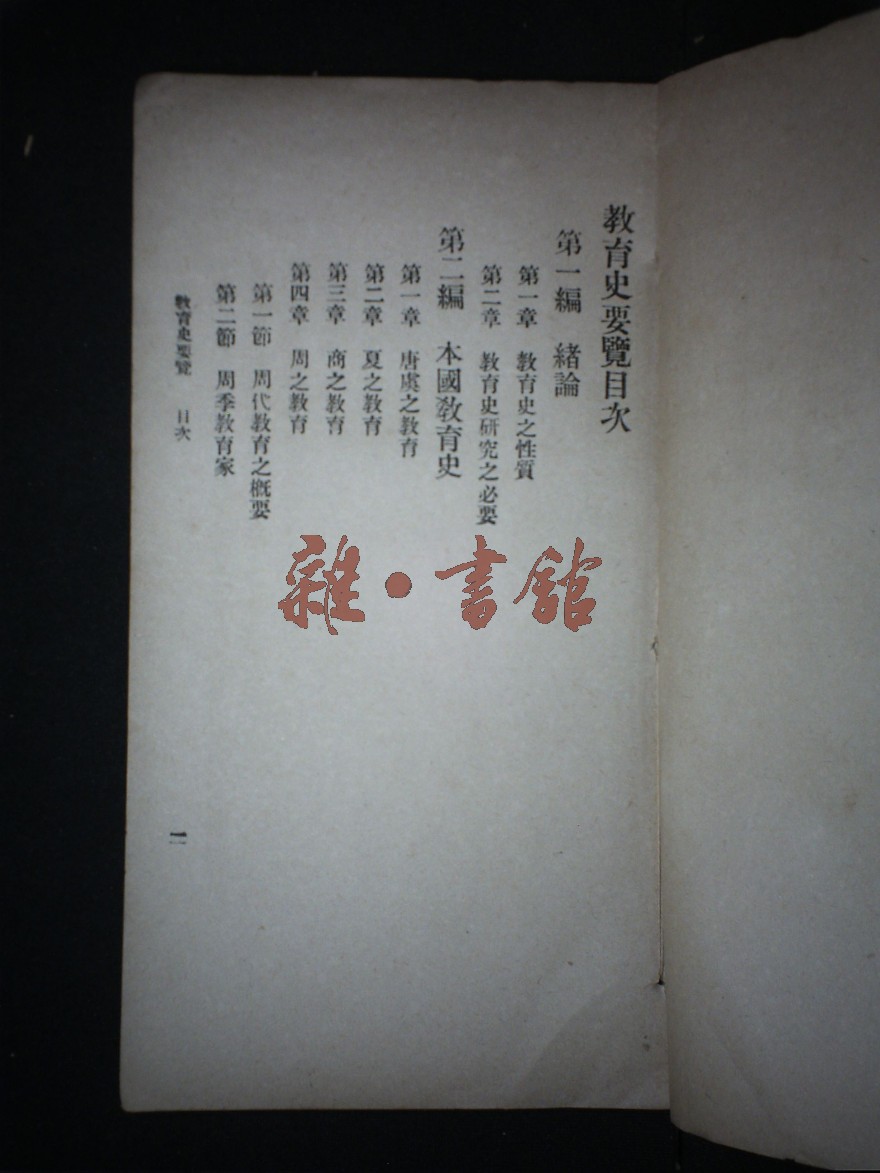 教育史要覽目次
第一編　緒論
第一章　教育史之性質
第二章　教育史研究之必要
第二編　本國教育史
第一章　唐虞之教育
第二章　夏之教育
第三章　商之教育
第四章　周之教育
第一節　周代教育之概要
第二節　周季教育家
教育史要覽　目次
二
雜·書館